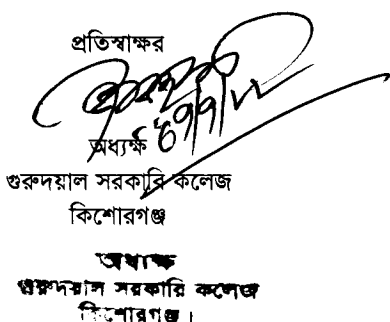 প্রতিস্বাক্ষর
অধ্যক্ষ
গুরুদয়াল সরকারি কলেজ
কিশোরগঞ্জ
অধ্যক্ষ
গুরুদয়াল সরকারি কলেজ
কিশোরগঞ্জ।